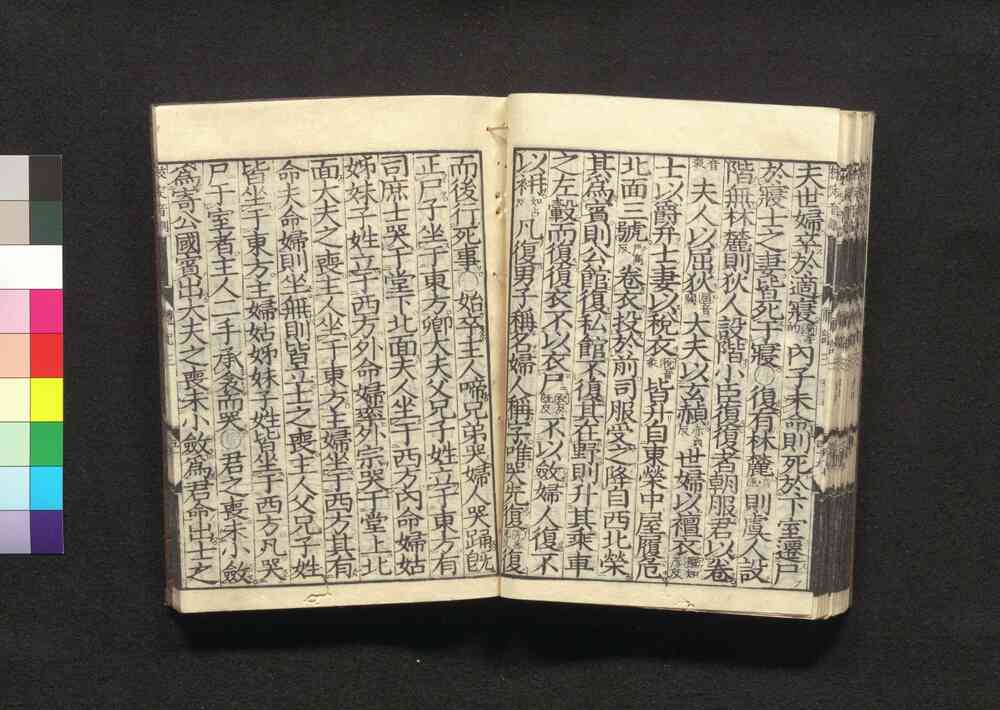 夫世婦卒於適寢內子未命則死於下室遷尸
於寢士之妻皆死于寢○復有林麓則虞人設
階無林麓則狄人設階小臣復復者朝服君以卷
夫人以屈狄大夫以玄赬世婦以襢衣
士以爵弁士妻以稅衣皆升自東榮中屋履危
北面三號卷衣投於前司服受之降自西北榮
其為賓則公館復私館不復其在野則升其乘車
之左轂而復復衣不以衣尸不以斂婦人復不
以袡凡復男子稱名婦人稱字唯哭先復復
而後行死事○始卒主人啼兄弟哭婦人哭踊旣
正尸子坐于東方卿大夫父兄子姓立于東方有
司庶士哭于堂下北面夫人坐于西方內命婦姑
姊妹子姓立于西方外命婦率外宗哭于堂上北
面大夫之喪主人坐于東方主婦坐于西方其有
命夫命婦則坐無則皆立士之喪主人父兄子姓
皆坐于東方主婦姑姊妹子姓皆坐于西方凡哭
尸于室者主人二手承衾而哭○君之喪未小斂
為寄公國賓出大夫之喪未小斂為君命出士之